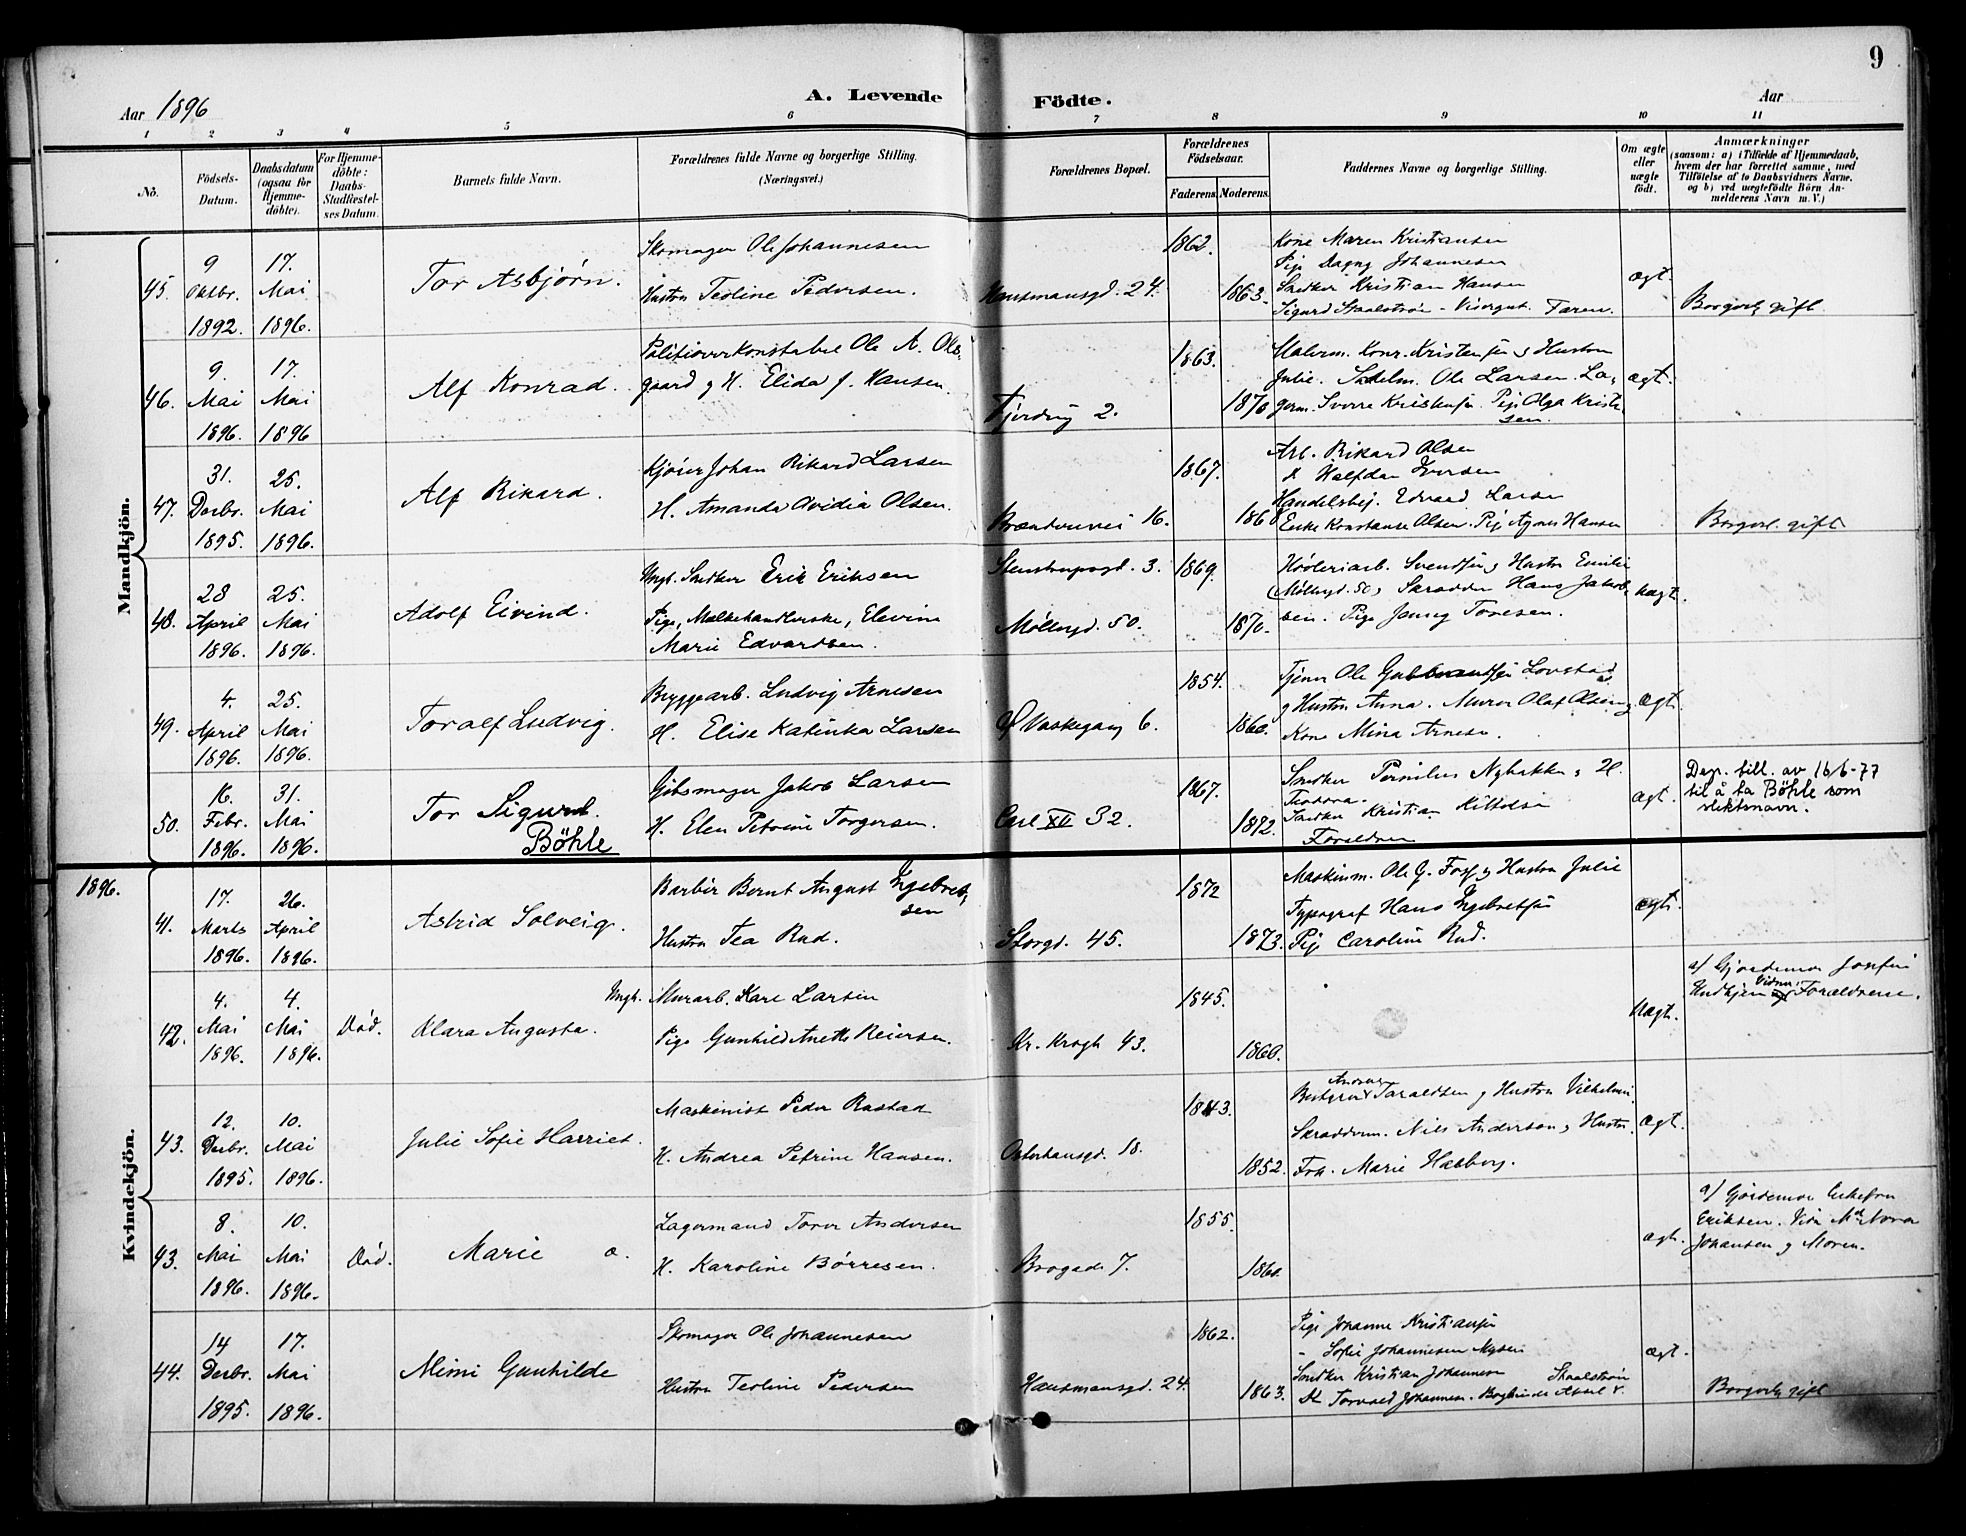 9
Aar 1896
A. Levende
Födte.
Aar
1 2 3 4 5 6 7 8 9 10 11
No.
Födsels-
Datum.
Daabsdatum
(ogsaa for
Hjemme-
döbte).
For Hjemme-
döbte:
Daabs-
Stadfæstel-
ses Datum.
Barnets fulde Navn.
Forældrenes fulde Navne og borgerlige Stilling.
(Næringsvei.)
Forældrenes Bopæl.
Forældrenes
Födselsaar.
Faderens.
Moderens.
Faddernes Navne og borgerlige Stilling.
Om ægte
eller
uægte
födt.
Anmærkninger
(saasom: a) i Tilfælde af Hjemmedaab,
hvem der har forrettet samme, med
Tilföielse af to Daabsvidners Navne,
og b) ved uægtefödte Börn An-
melderens Navn m. V.)
Mandkjön.
45.
9
Oktbr.
1892.
17.
Mai
1896.
Tor Asbjørn.
Skomager Ole Johannesen
Hustru Teoline Pedersen.
Hausmansgd. 24.
1862.
1863.
Kone Maren Kristiansen
Pige Dagny Johannesen
Snedker Kristian Hansen
Sigurd Skaalstrøm - Visergut. Faren.
ægt.
Borgerlig gift
46.
9.
Mai
1896.
17.
Mai
1896
Alf Konrad.
Politioverkonstabel Ole A. Ols-
gaard og H. Elida f. Hansen.
Fjerding 2.
1863.
1870
Malerm. Konr. Kristensen og Hustru
Julie. Sadelm. Ole Larsen. La-
germ. Sverre Kristensen. Pige Olga Kristen-
sen.
ægt.
47.
31.
Decbr.
1895.
25.
Mai
1896.
Alf Rikard.
Kjører Johan Rikard Larsen
H. Amanda Ovidia Olsen.
16.
1867.
Arb. Rikard Olsen
Halfdan Iversen
Handelsbej. Edvard Larsen
Enke Konstance Olsen. Pige Agnes Hansen
Borgerl. gift
48.
28
April
1896.
25.
Mai
1896.
Adolf Eivind.
Ungk. Snedker Erik Eriksen
Pige, Melkehandlerske, Elevine
Marie Edvardsen.
Stenstrupsgd. 3.
Møllergd. 50.
1869.
1870.
Høvleriarb. Svendsen og Hustru Emilie
(Møllergd. 50) Skrædder Hans Jakob-
sen. Pige Jenny Tonesen.
uægt.
49.
4.
April
1896.
25.
Mai
1896.
Toralf Ludvig.
Bryggearb. Ludvig Arnesen
H. Elise Katinka Larsen
Vaskegang 6.
1854.
1860.
Tjener Ole Gulbrandsen Lovstad
og Hustru Anna. Murer Olaf Olsen og
Kone Mina Arnesen.
ægt.
50.
16.
Febr.
1896.
31.
Mai
1896.
Tor Sigurd.
Böhle
Gibsmager Jakob Larsen
H. Elen Petrine Torgersen.
Carl XII 32.
1867.
1872.
Snedker Pernilus Nybakke og H.
Teodora.
Snedker Kristian Kittelsen
Forældrene
ægt.
Dep. till. av 16/6-77
til å ta Böhle som
slektsnavn.
Kvindekjön.
1896.
41.
17.
Marts
1896.
26.
April
1896.
Astrid Solveig.
Barbér Bernt August Ingebret-
sen
Hustru Tea Rud.
Storgd. 45.
1872
1873.
Maskinm. Ole G. Foss og Hustru Julie
Typograf Hans Ingebretsen
Pige Caroline Rud.
ægt.
42.
4.
Mai
1896.
4.
Mai
1896.
Död.
Klara Augusta.
Ungk. Murarb. Kare Larsen
Pige Gunhild Anette Reiersen.
Kr. Krogh 43.
1845.
1860.
Uægt.
a) Gjordemor Josefine
Vidner:
Forældrene.
43.
12.
Decbr.
1895.
10.
Mai
1896.
Julie Sofie Harriet.
Maskinist Peder Rastad
H. Andrea Petrine Hansen.
Osterhausgd. 18.
1843.
1852.
Andreas
Taraldsen og Hustru Vilhelmine
Skrædderm. Nils Anderson og Hustru.
Frk. Marie Hasberg.
ægt.
43.
8.
Mai
1896.
10.
Mai
1896.
Död.
Marie
Lagermand Torer Andersen
H. Karoline Børresen.
Brogade 7.
1855.
1860.
ægt.
a) Gjordemor Enkefru
Eriksen. Vidn. Md Nora
Johansen og Moren.
44.
14
Decbr.
1895.
17.
Mai
1896.
Mimi Gunhilde
Skomager Ole Johannesen
Hustru Teoline Pedersen
Hausmansgd. 24.
1862.
1863.
Pige Johanne Kristiansen
" Sofie Johannesen Mysen
Snedker Kristian Johannesen Skaalstrøm
Torvald Johannesen.
ægt.
Borgerlig gift